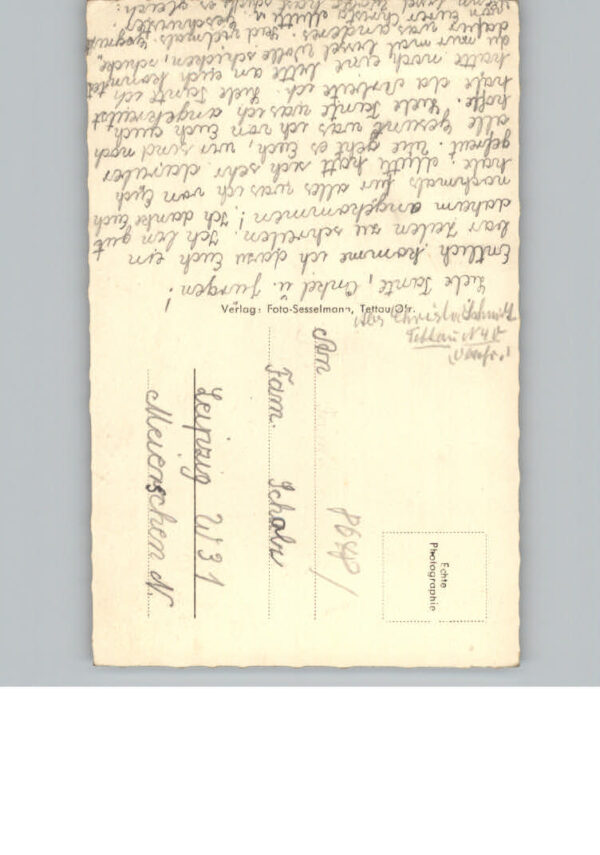 Liebe Tante, Onkel u. Jürgen!
Entlich komme ich dazu Euch ein
bar Zeilen zu schreiben. Ich bin gut
daheim angekommen! Ich danke Euch
nochmals für alles was ich von Euch
habe. Mutti hatt sich sehr darüber
gefreut. Wie geht es Euch, wir sind noch
alle gesunt was ich von Euch auch
hoffe. Liebe Tante was ich
habe da Arbeite ich. Liebe Tante ich
hätte noch eine bitte an euch könntet
du mir mal Wolle schicken, schicke
dafür was anderes. Seid vielmals gegrüst
von Eurer Christa Mutti u. Geschwister.
Verlag: Foto-Sesselmann, Tettau/Ofr.
Abs. Christa Schmidt
Tettau N 40
An
Fam. Scholz
Leipzig W 31
Echte
Photographie